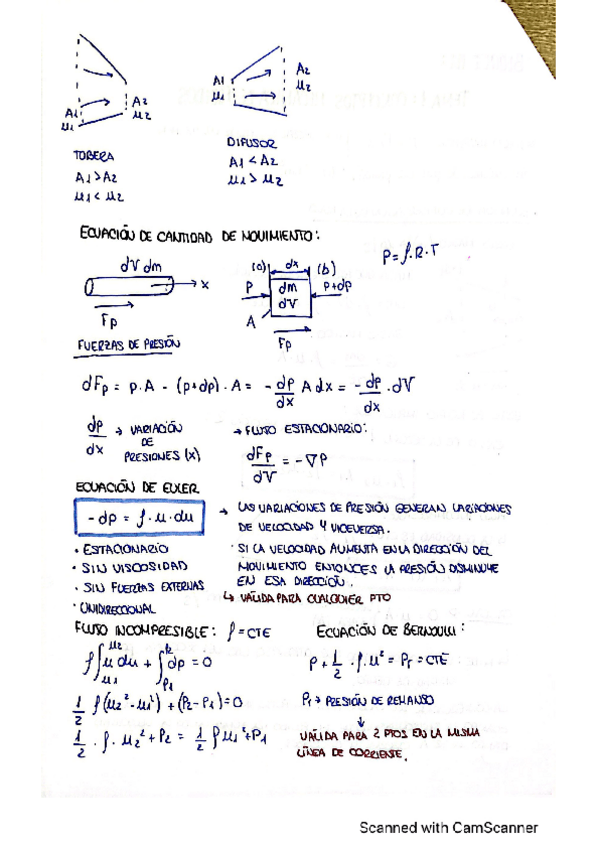 A1 A2
μ1 μ2
A1 A2
μ1 μ2
TOBERA
A1 > A2
μ1 < μ2
DIFUSOR
A1 < A2
μ1 > μ2
ECUACIÓN DE CANTIDAD DE MOVIMIENTO:
P = ρ.R.T
dV dm
x
Fp
(a) dx (b)
P dm P+dp
dV
A
Fp
FUERZAS DE PRESIÓN
dFp = p.A - (p+dp).A = - dp/dx A dx = - dp/dx . dV
dp/dx → VARIACIÓN DE PRESIONES (x)
→ FLUJO ESTACIONARIO:
dFp/dV = -∇P
ECUACIÓN DE EULER
-dp = ρ.μ.du
→ LAS VARIACIONES DE PRESIÓN GENERAN VARIACIONES
DE VELOCIDAD Y VICEVERSA.
· ESTACIONARIO
· SIN VISCOSIDAD
· SIN FUERZAS EXTERNAS
· UNIDIRECCIONAL
· SI LA VELOCIDAD AUMENTA EN LA DIRECCIÓN DEL
MOVIMIENTO ENTONCES LA PRESIÓN DISMINUYE
EN ESA DIRECCIÓN.
↳ VÁLIDA PARA CUALQUIER PTO
FLUJO INCOMPRESIBLE: ρ = CTE
ρ∫μ1^μ2 μ du + ∫P1^P2 dp = 0
1/2 ρ(μ2² - μ1²) + (P2 - P1) = 0
1/2 . ρ. μ2² + P2 = 1/2 ρμ1² + P1
ECUACIÓN DE BERNOULLI:
P + 1/2 . ρ.μ² = Pt = CTE
Pt → PRESIÓN DE REMANSO
↓
VÁLIDA PARA 2 PTOS EN LA MISMA
LÍNEA DE CORRIENTE.
Scanned with CamScanner